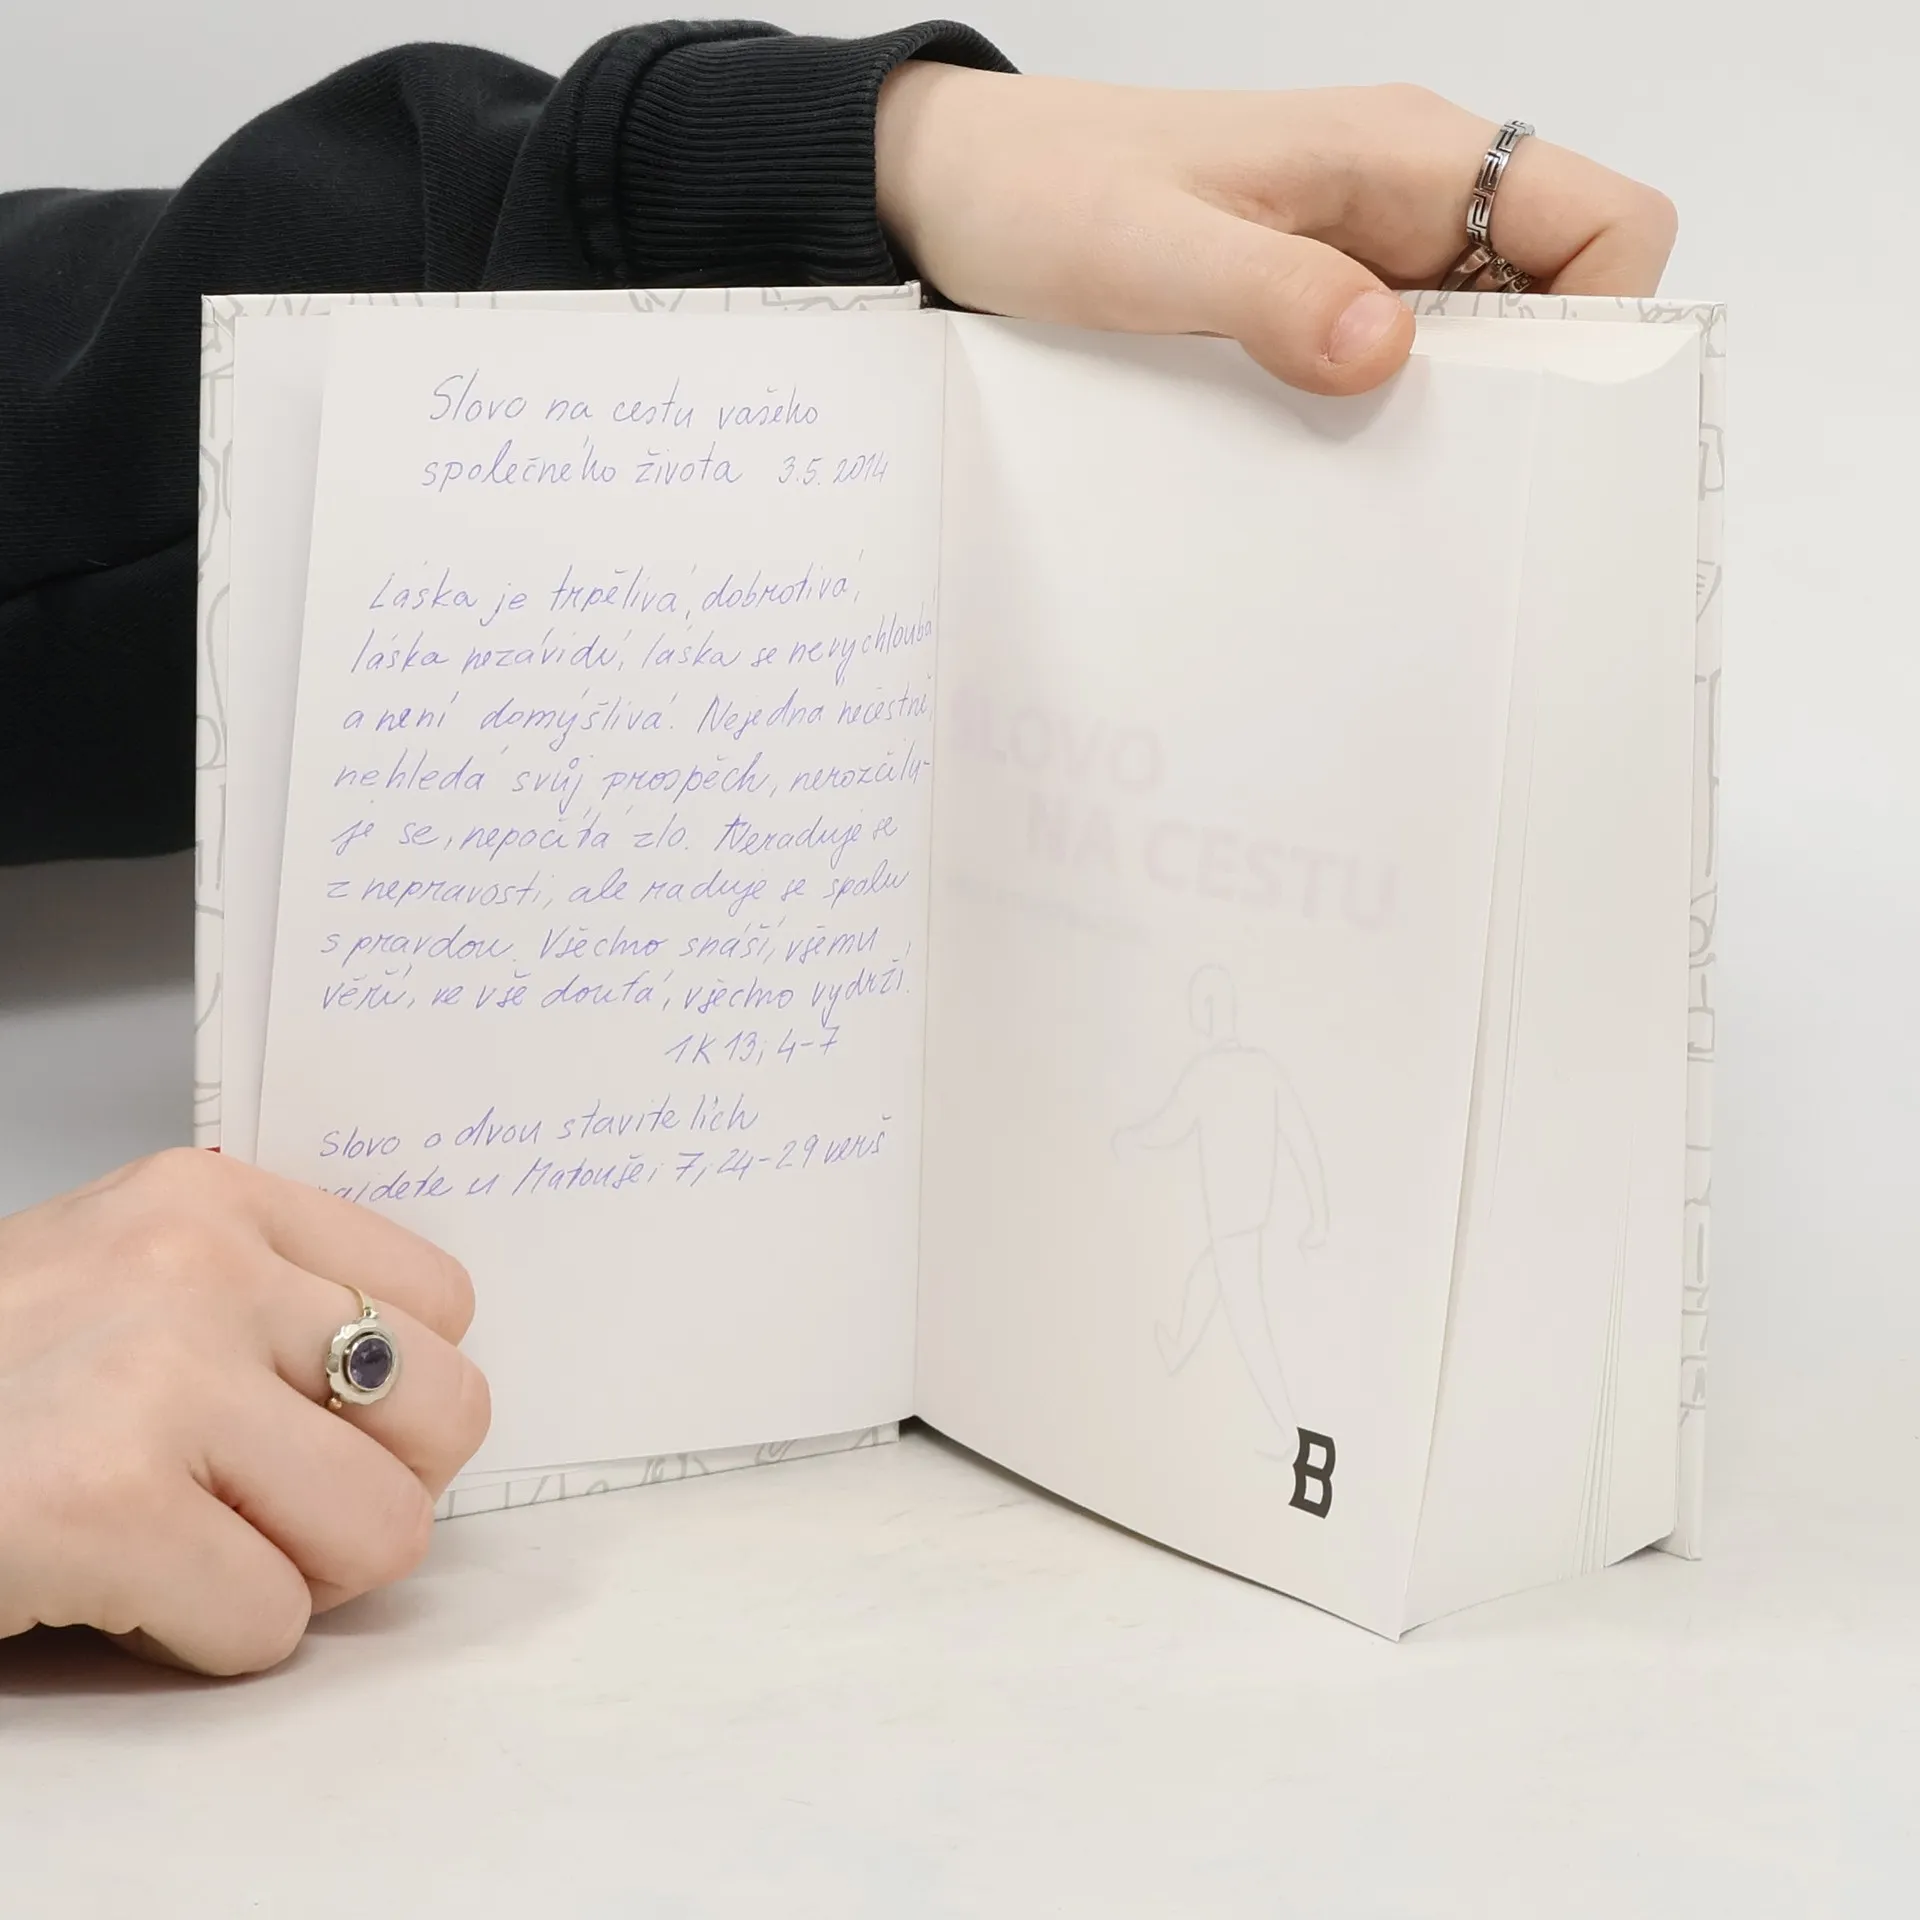 Slovo na cestu vašeho
společného života 3.5.2014
Láska je trpělivá, dobrotivá,
láska nezávidí, láska se nevychloubá
a není domýšlivá. Nejedná nečestně,
nehledá svůj prospěch, nerozčilu-
je se, nepočítá zlo. Neraduje se
z nepravosti, ale raduje se spolu
s pravdou. Všechno snáší, všemu
věří, ve vše doufá, všechno vydrží.
1K 13, 4-7
Slovo o dvou stavitelích
najdete u Matouše, 7, 24-29 verš
SLOVO
NA CESTU
B